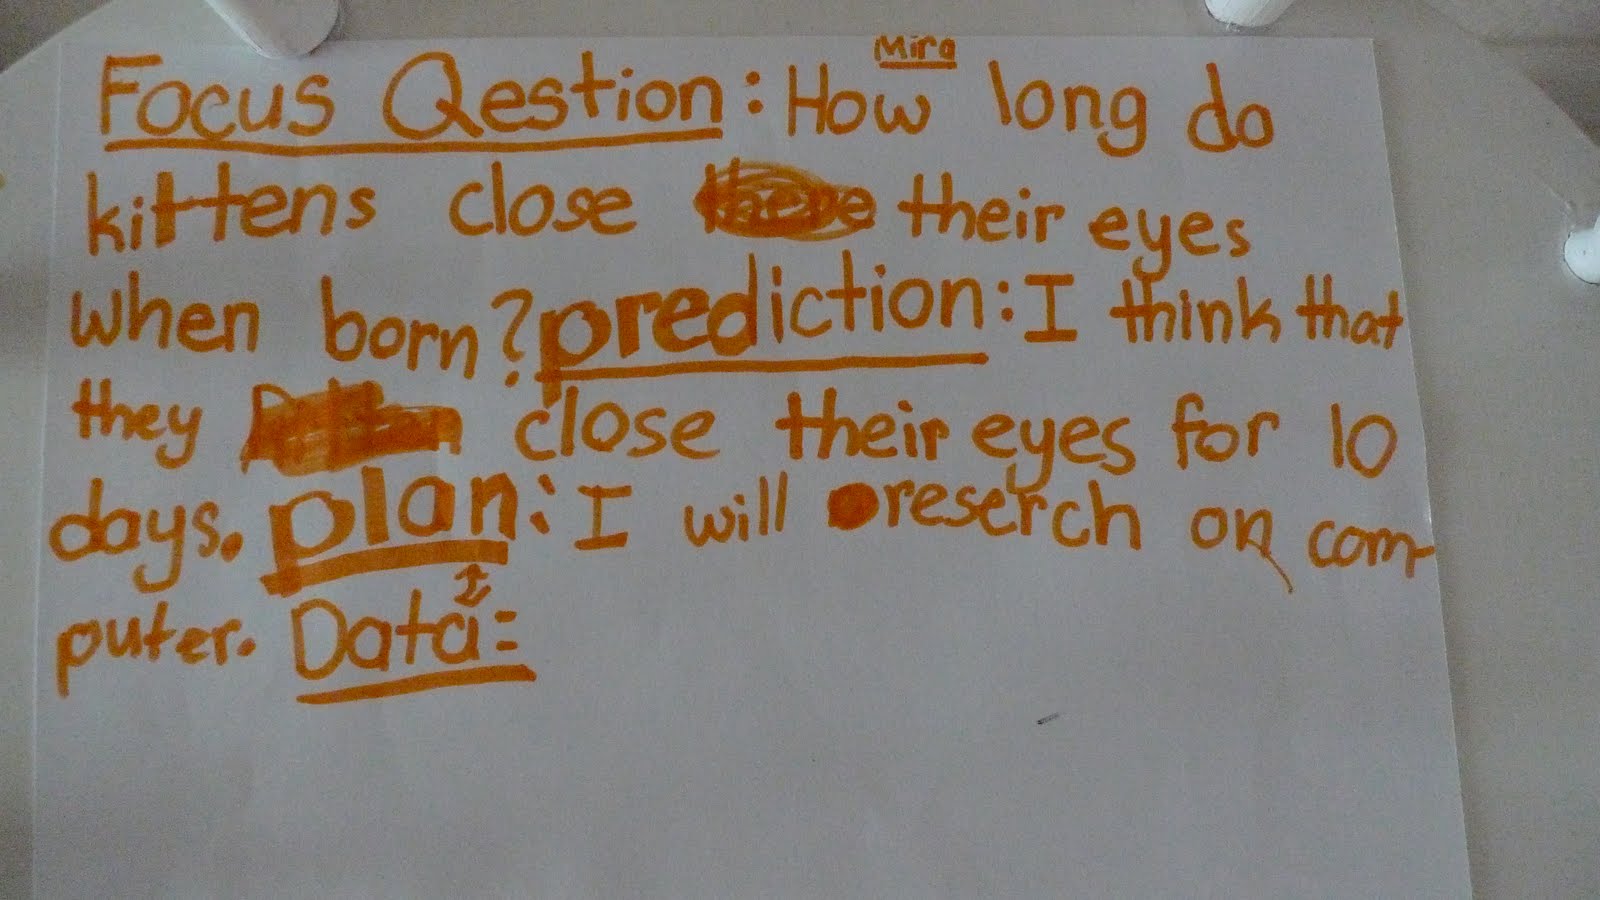 Mira
Focus Qestion: How long do
kittens close their eyes
when born? prediction: I think that
they close their eyes for 10
days. plan: I will reserch on com-
puter. Data: